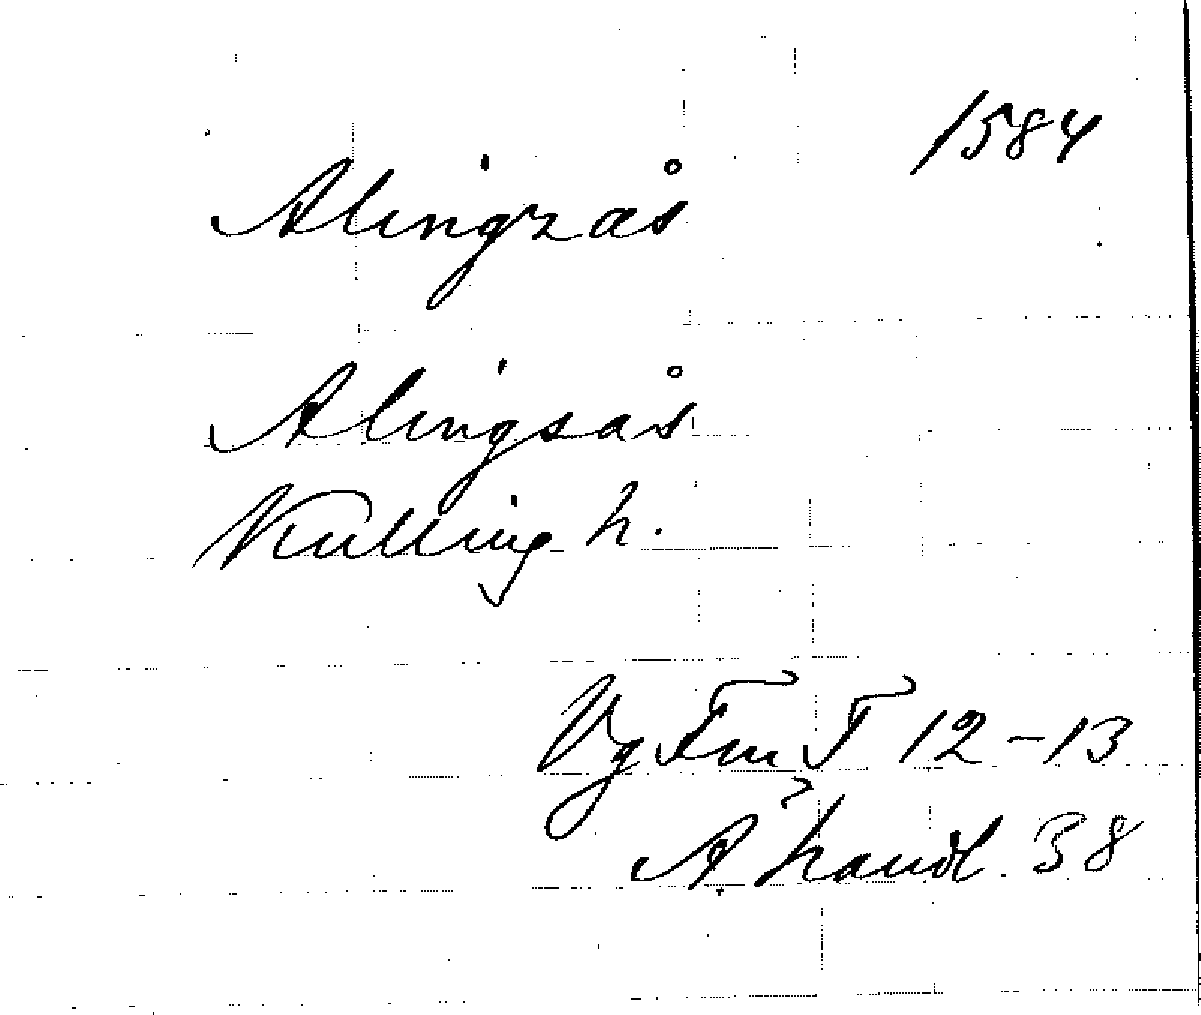 1584
Alingzås
Alingsås
Kulling h.
Vg FmT 12-13
A. handl. 38